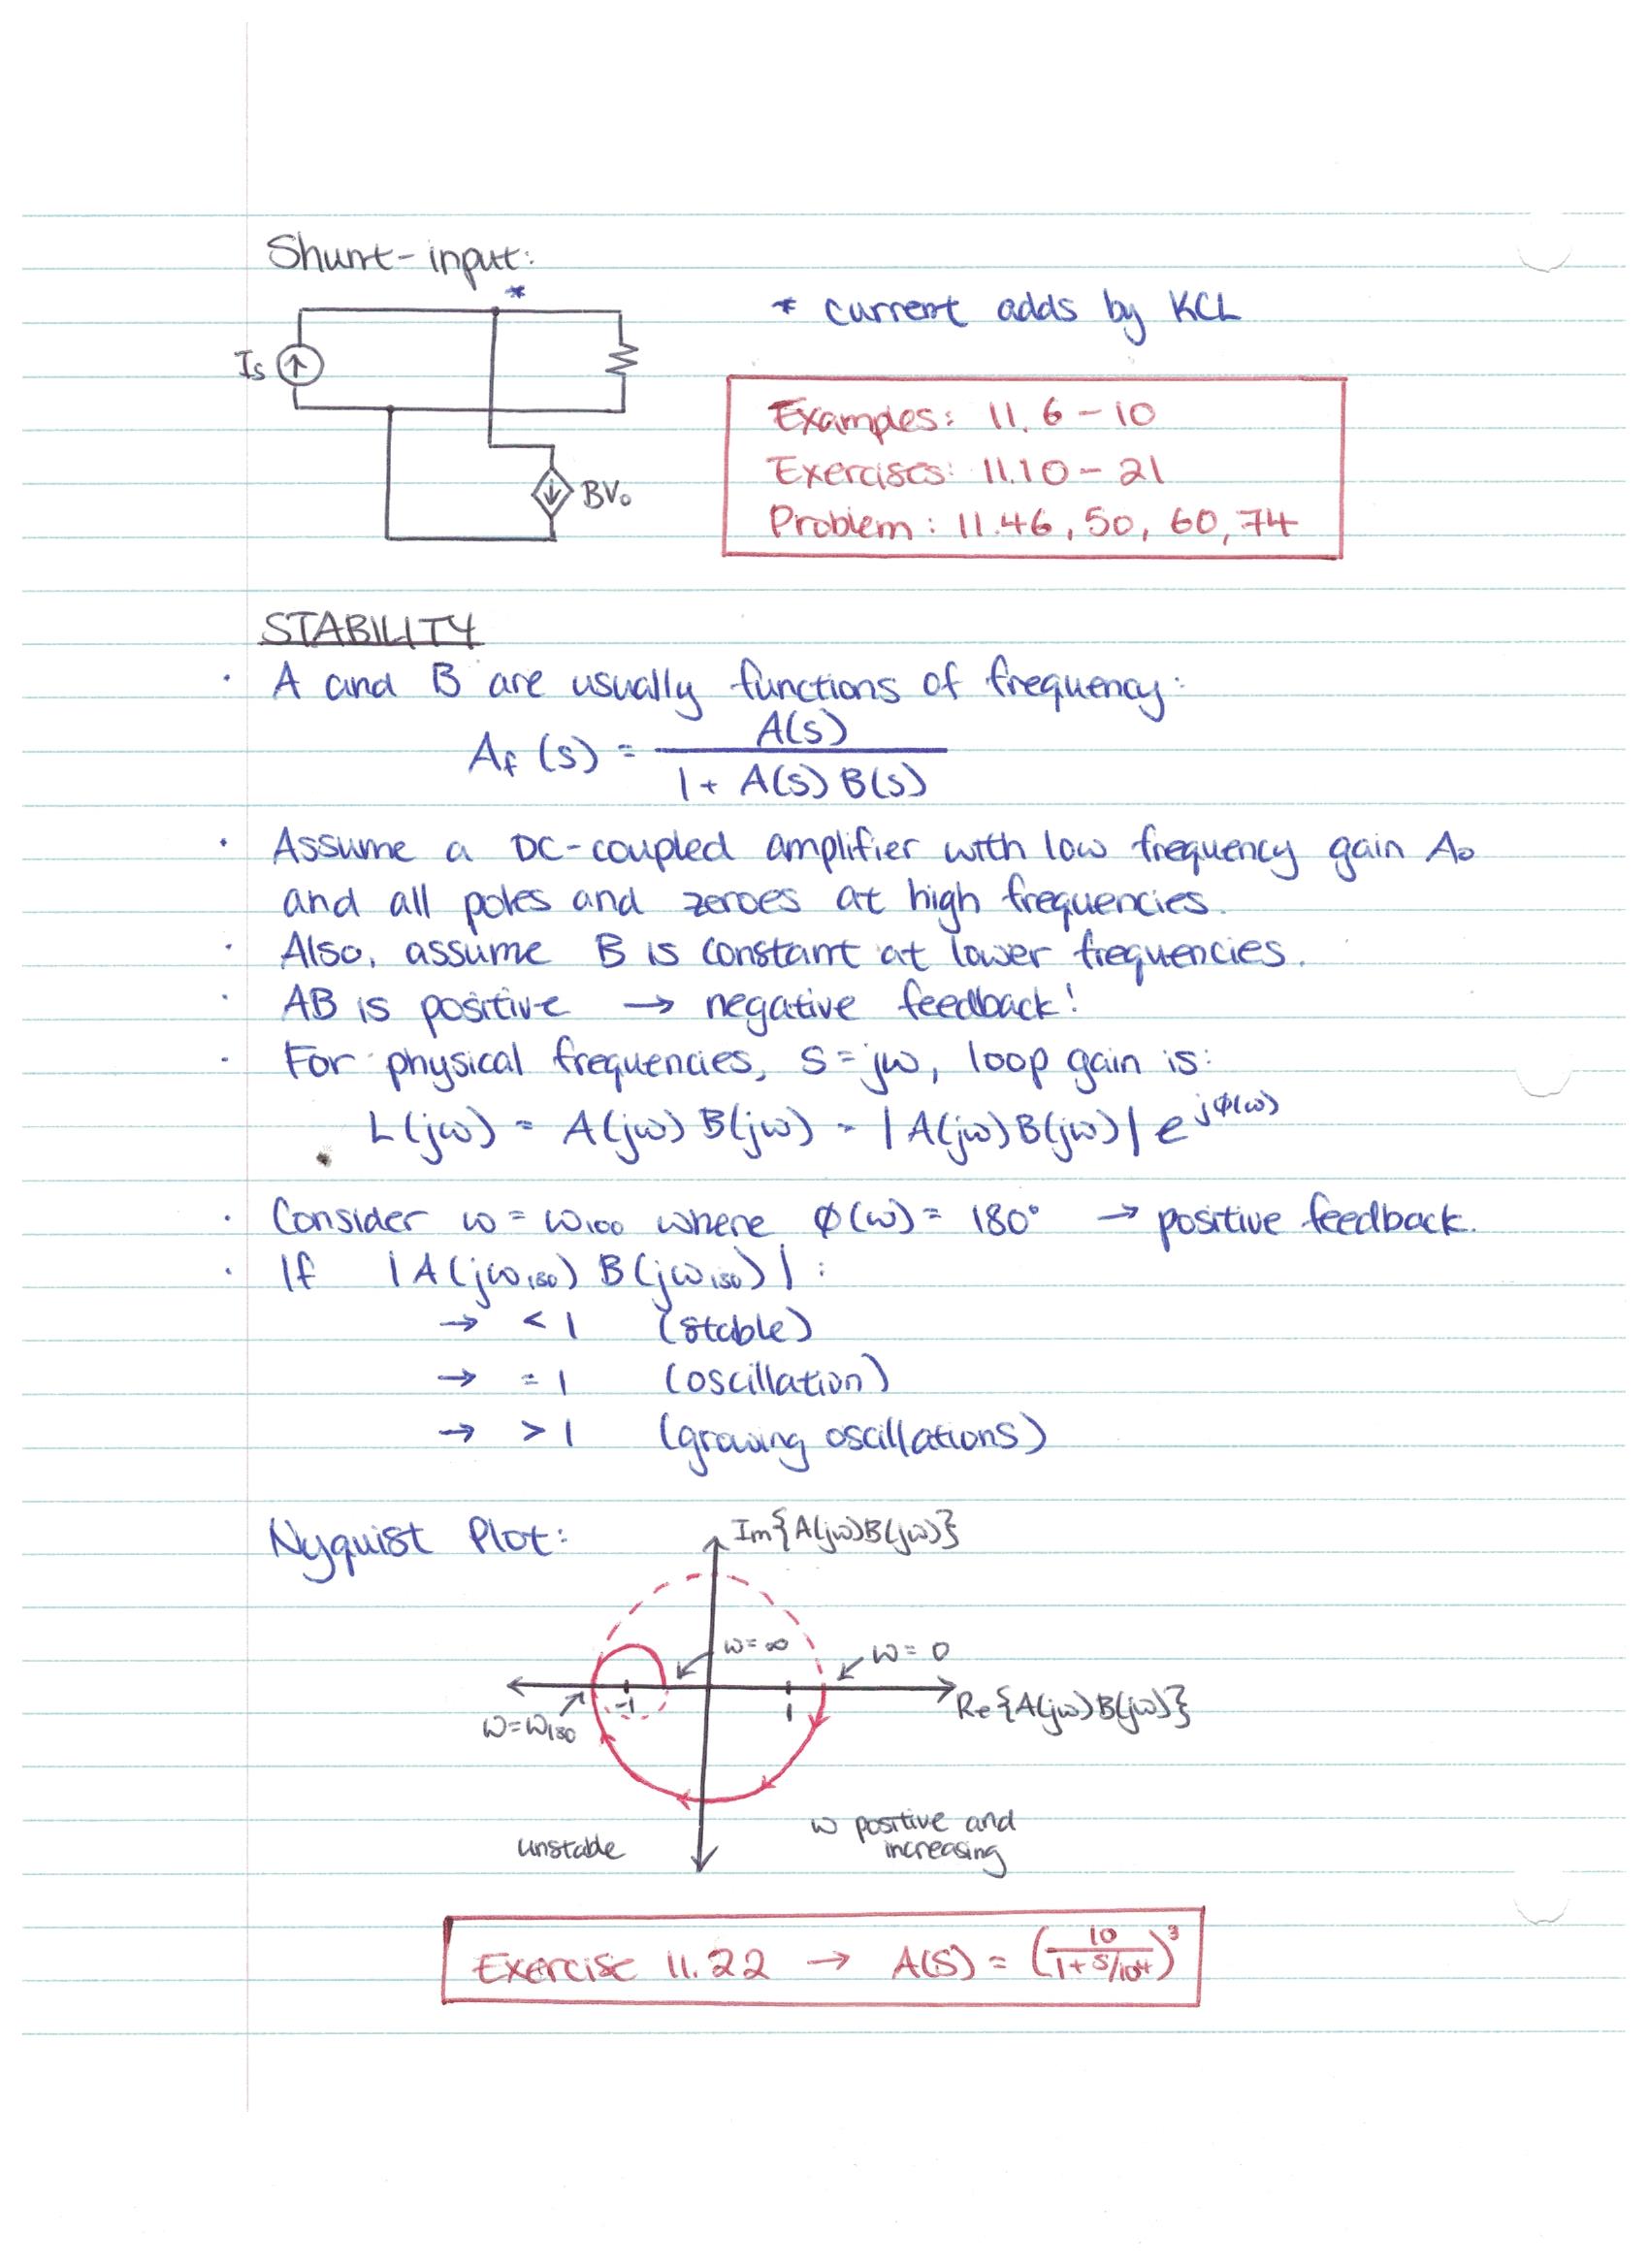 Shunt-input:
*
* current adds by KCL
Is
BVo
Examples: 11.6-10
Exercises: 11.10-21
Problem: 11.46, 50, 60, 74
STABILITY
· A and B are usually functions of frequency:
Af(s) = A(s) / 1 + A(s)B(s)
· Assume a DC-coupled amplifier with low frequency gain Ao
and all poles and zeroes at high frequencies.
· Also, assume B is constant at lower frequencies.
· AB is positive → negative feedback!
· For physical frequencies, s=jω, loop gain is:
L(jω) = A(jω)B(jω) = |A(jω)B(jω)| e^jφ(ω)
· Consider ω = ω180 where φ(ω) = 180° → positive feedback.
· If |A(jω180) B(jω180)|:
→ < 1 (stable)
→ = 1 (oscillation)
→ > 1 (growing oscillations)
Nyquist Plot:
Im{A(jω)B(jω)}
ω=∞
ω=0
-1
1
Re{A(jω)B(jω)}
ω=ω180
ω positive and
increasing
unstable
Exercise 11.22 → A(s) = (10 / 1+s/10^4)^3